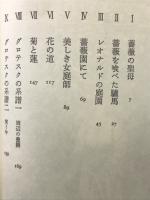 I 薔薇の聖母 7
II 薔薇を喰べた驢馬 27
III レオナルドの庭園 45
IV 薔薇園にて 69
V 美しき女庭師 89
VI 花の道 117
VII 菊と蓮 147
VIII グロテスクの系譜㈠ 周辺の装飾 169
IX
X グロテスクの系譜㈡